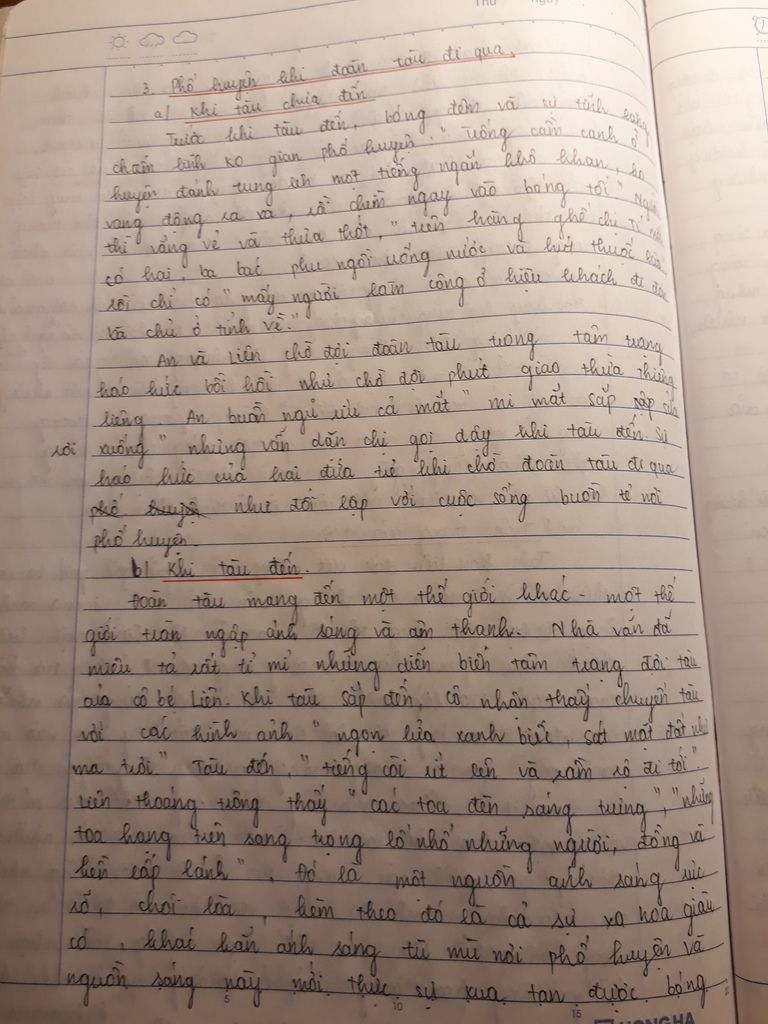 Thứ Ngày
3. Phố huyện khi đoàn tàu đi qua.
a/ Khi tàu chưa đến
Trước khi tàu đến, bóng đêm và sự tĩnh lặng
chấm lĩnh ko gian phố huyện: "Trống cầm canh ở
huyện đánh tung lên một tiếng ngắn khô khan, ko
vang động ra xa, rồi chìm ngay vào bóng tối" Người
thì vắng vẻ và thưa thớt, "trên hàng ghế chị Tí mới
có hai, ba bác phu ngồi uống nước và hút thuốc lào
rồi chỉ có "mấy người làm công ở hiệu khách đi đón
bà chủ ở tỉnh về."
An và Liên chờ đợi đoàn tàu trong tâm trạng
háo hức bồi hồi như chờ đợi phút giao thừa thiêng
liêng. An buồn ngủ ríu cả mắt "mi mắt sắp sập sửa
rơi xuống" nhưng vẫn dặn chị gọi dậy khi tàu đến. Sự
háo hức của hai đứa trẻ khi chờ đoàn tàu đi qua
như đối lập với cuộc sống buồn tẻ nơi
phố huyện.
b/ Khi tàu đến.
Đoàn tàu mang đến một thế giới khác - một thế
giới tràn ngập ánh sáng và âm thanh. Nhà văn đã
miêu tả rất tỉ mỉ những diễn biến tâm trạng đợi tàu
của cô bé Liên. Khi tàu sắp đến, cô nhận thấy chuyến tàu
với các hình ảnh "ngọn lửa xanh biếc, sát mặt đất như
ma trơi." Tàu đến, "tiếng còi rít lên và rầm rộ đi tới"
Liên thoáng trông thấy "các toa đèn sáng trưng", "những
toa hạng trên sang trọng lố nhố những người, đồng và
kền lấp lánh". Đó là một nguồn ánh sáng rực
rỡ, chói lòa, kèm theo đó là cả sự xa hoa giàu
có, khác hẳn ánh sáng tù mù nơi phố huyện và
nguồn sáng này mới thực sự xua tan được bóng
5 10 15
HONGHA